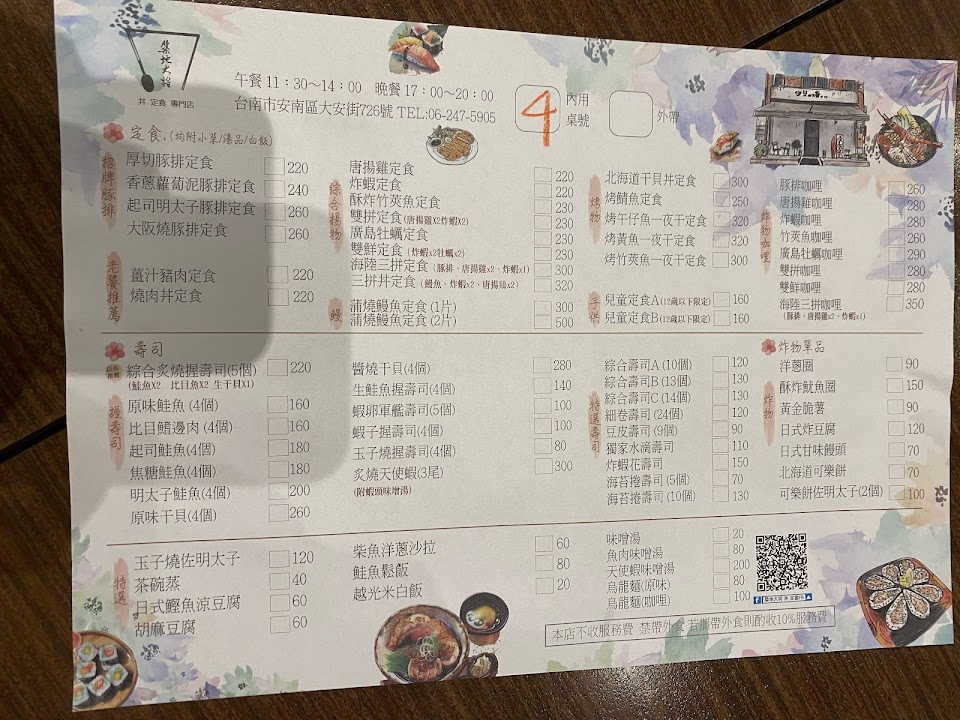 築地大將
丼 定食 專門店
午餐 11：30～14：00 晚餐 17：00～20：00
台南市安南區大安街726號 TEL:06-247-5905
4
內用
桌號
外帶
定食、(均附小菜/湯品/白飯)
招牌豚排
厚切豚排定食 220
香蔥蘿蔔泥豚排定食 240
起司明太子豚排定食 260
大阪燒豚排定食 260
老饕推薦
薑汁豬肉定食 220
燒肉丼定食 220
綜合揚物
唐揚雞定食 220
炸蝦定食 220
酥炸竹莢魚定食 230
雙拼定食(唐揚雞X2炸蝦x2) 230
廣島牡蠣定食 230
雙鮮定食 (炸蝦x2牡蠣x2) 230
海陸三拼定食 (豚排、唐揚雞x2、炸蝦x1) 300
三拼丼定食 (鰻魚、炸蝦x2、唐揚雞x2) 320
鰻
蒲燒鰻魚定食 (1片) 300
蒲燒鰻魚定食 (2片) 500
烤物
北海道干貝丼定食 300
烤鯖魚定食 250
烤午仔魚一夜干定食 320
烤黃魚一夜干定食 320
烤竹莢魚一夜干定食 300
子供
兒童定食A(12歲以下限定) 160
兒童定食B(12歲以下限定) 160
炸物咖哩
豚排咖哩 260
唐揚雞咖哩 260
炸蝦咖哩 260
竹莢魚咖哩 260
廣島牡蠣咖哩 290
雙拼咖哩 280
雙鮮咖哩 280
海陸三拼咖哩 350
(豚排、唐揚雞x2、炸蝦x1)
壽司
綜合炙燒握壽司(5個) 220
(鮭魚X2 比目魚X2 生干貝X1)
握壽司
原味鮭魚 (4個) 160
比目鰭邊肉 (4個) 160
起司鮭魚(4個) 180
焦糖鮭魚(4個) 180
明太子鮭魚(4個) 200
原味干貝(4個) 260
醬燒干貝(4個) 280
生鮭魚握壽司(4個) 140
蝦卵軍艦壽司(5個) 100
蝦子握壽司(4個) 100
玉子燒握壽司(4個) 80
炙燒天使蝦(3尾) 300
(附蝦頭味增湯)
特選壽司
綜合壽司A (10個) 120
綜合壽司B (13個) 130
綜合壽司C (14個) 130
細卷壽司 (24個) 120
豆皮壽司 (9個) 90
獨家水滴壽司 110
炸蝦花壽司 150
海苔捲壽司 (5個) 70
海苔捲壽司 (10個) 130
炸物單品
炸物
洋蔥圈 90
酥炸魷魚圈 150
黃金脆薯 90
日式炸豆腐 120
日式甘味饅頭 70
北海道可樂餅 70
可樂餅佐明太子(2個) 100
特選
玉子燒佐明太子 120
茶碗蒸 40
日式鰹魚涼豆腐 60
胡麻豆腐 60
柴魚洋蔥沙拉 60
鮭魚鬆飯 80
越光米白飯 20
味噌湯 20
魚肉味噌湯 80
天使蝦味噌湯 200
烏龍麵(原味) 80
烏龍麵(咖哩) 100
本店不收服務費 禁帶外食 若攜帶外食則酌收10%服務費